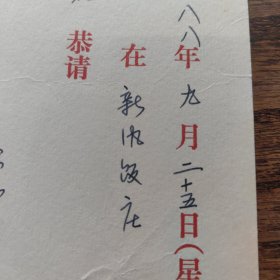 八八年九月二十五日(星
在新风饭庄
恭请